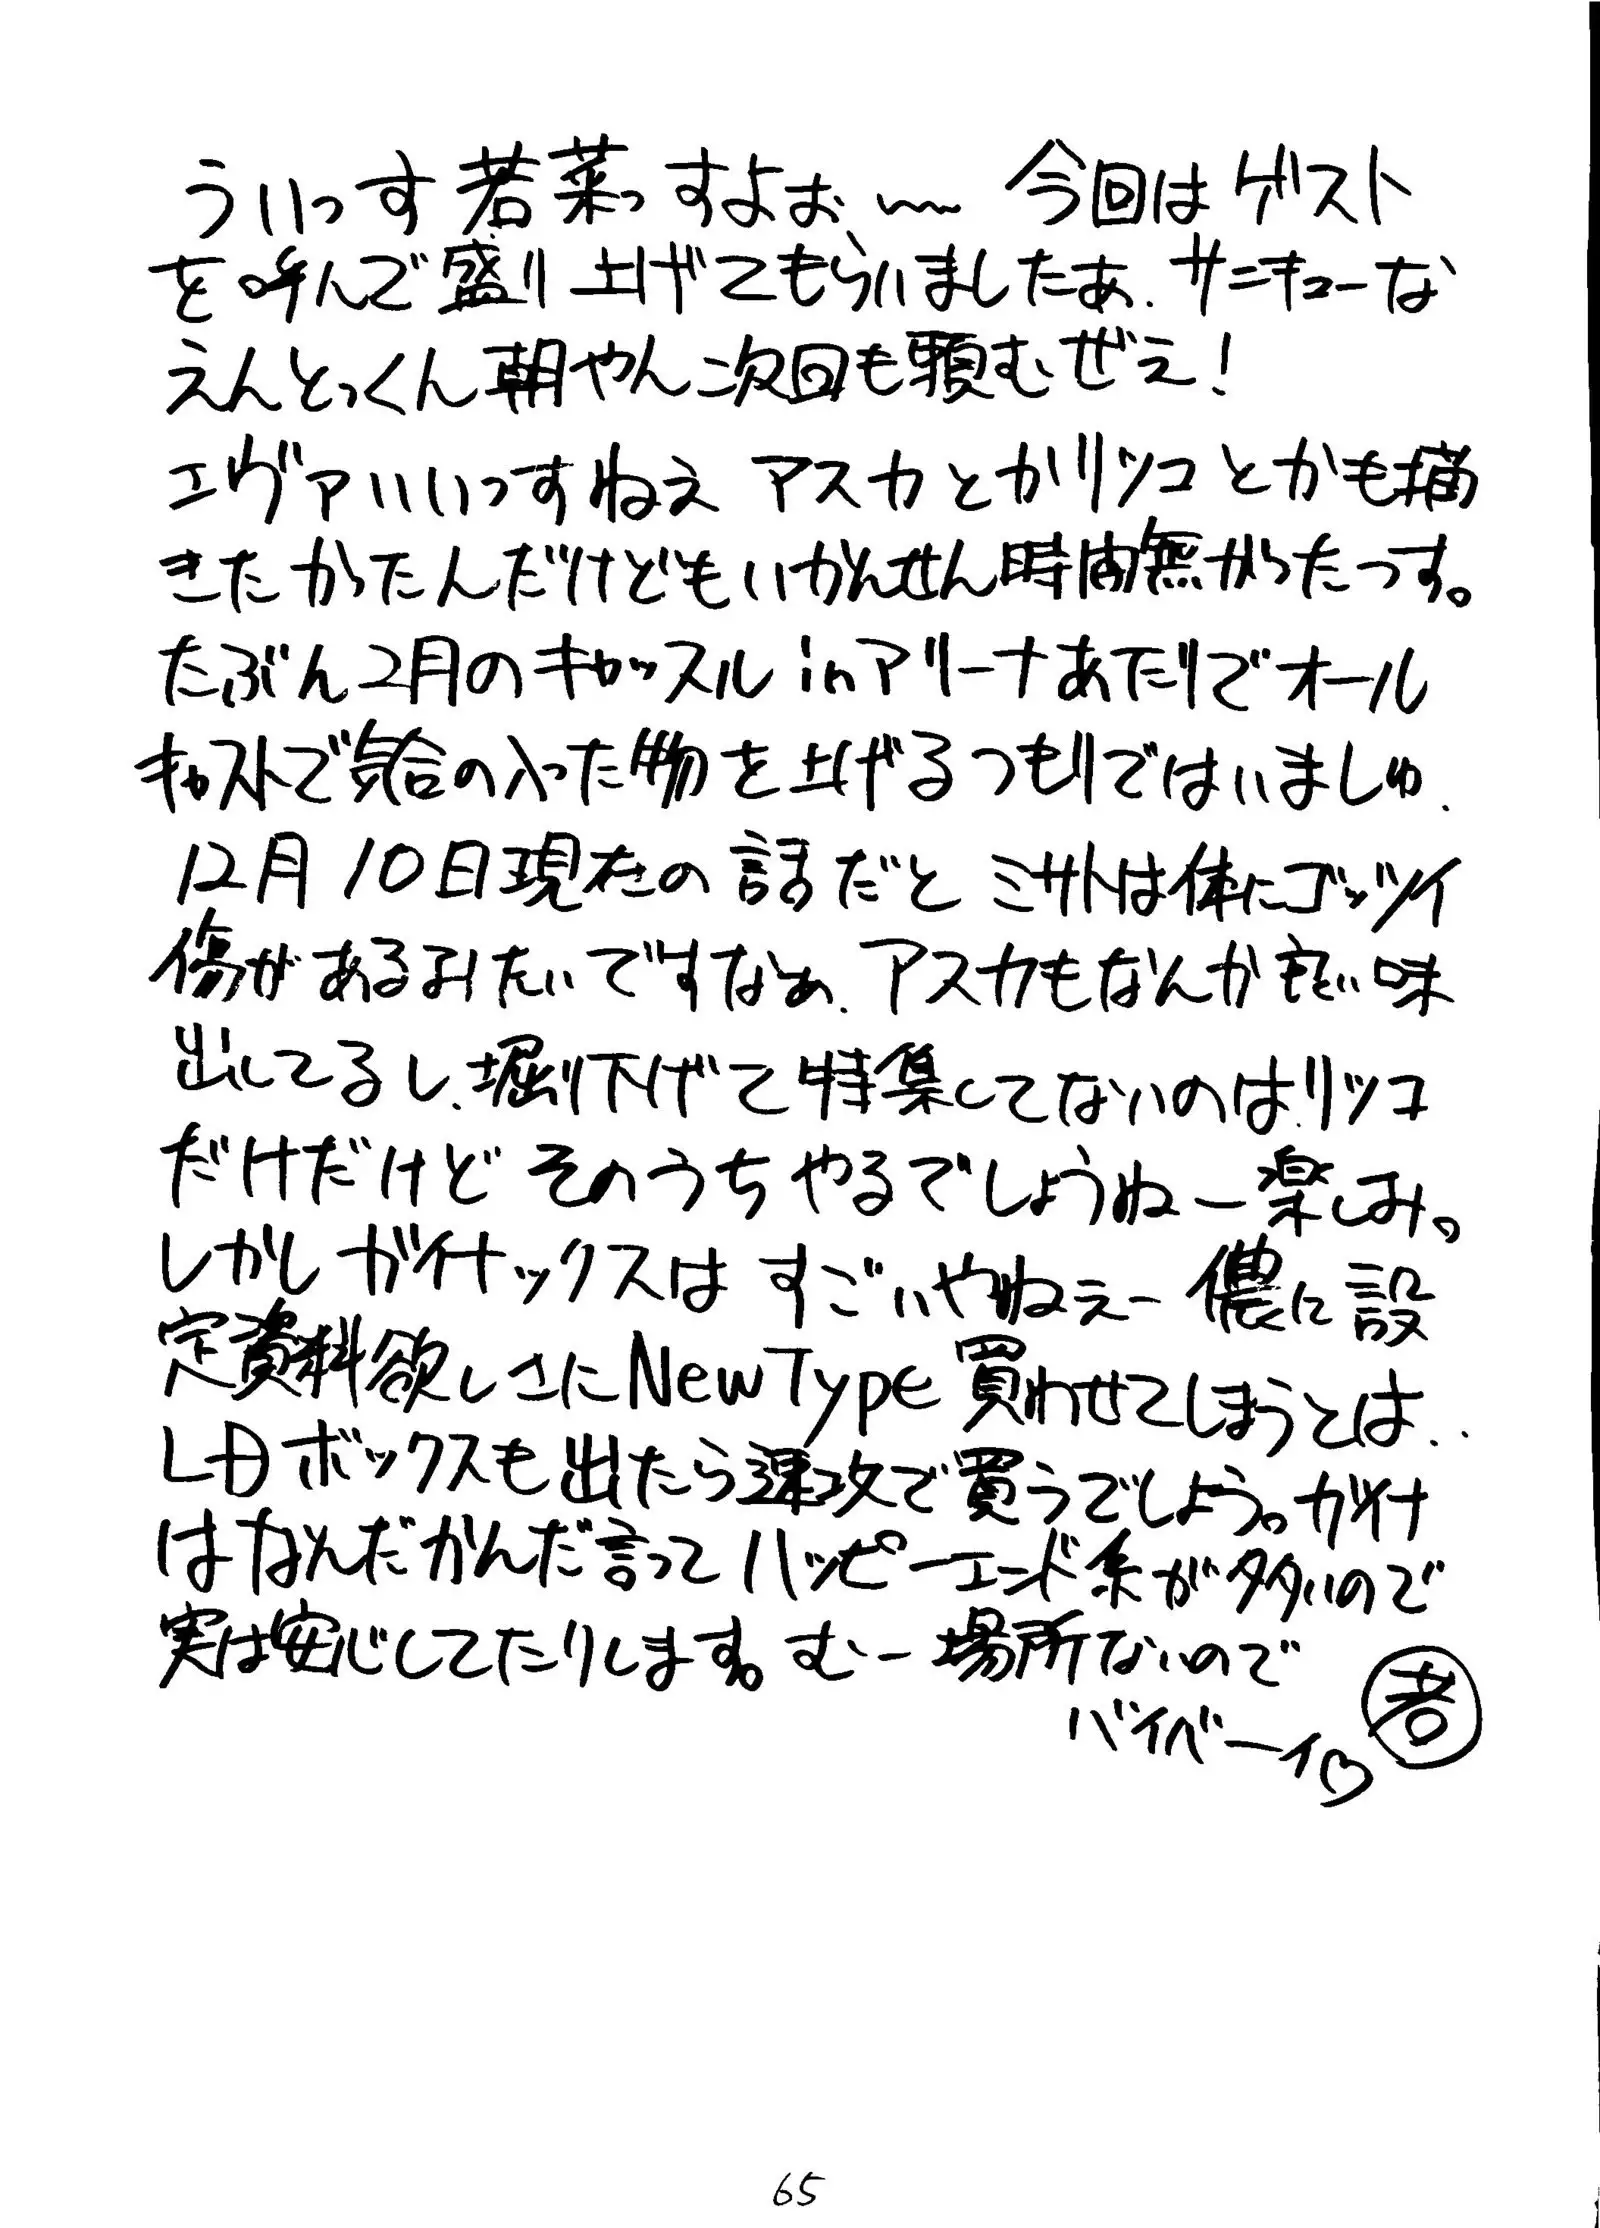 ういっす 若菜っすよぉ、〜 今回はゲスト
を呼んで盛り上げてもらいましたぁ、サンキューな
えんとっくん 朝やん 次回も頼むぜぇ!
エヴァいいっすねえ アスカとかリツコとかも描
きたかったんだけどもいかんせん時間無かったっす。
たぶん2月のキャッスルinアリーナあたりでオール
キャストで気合の入った物を上げるつもりではいましゅ、
12月10日現在の話だと ミサトは体にゴッツイ
傷があるみたいですなぁ、アスカもなんか良い味
出してるし、堀り下げて特集してないのは、リツコ
だけだけど そのうちやるでしょうねー楽しみ。
しかしガイナックスは すごいやねぇー 儂に設
定資料欲しさにNewType買わせてしまうとは‥
LDボックスも出たら速攻で買うでしょう。ガイナ
はなんだかんだ言ってハッピーエンド系が多いので
実は安心してたりします。むー場所ないので
バイバーイ♡ 若
65